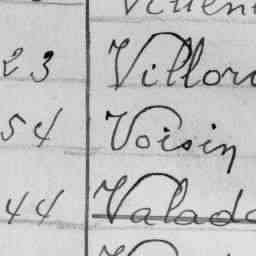 23 Villor
54 Voisin
44 Valad